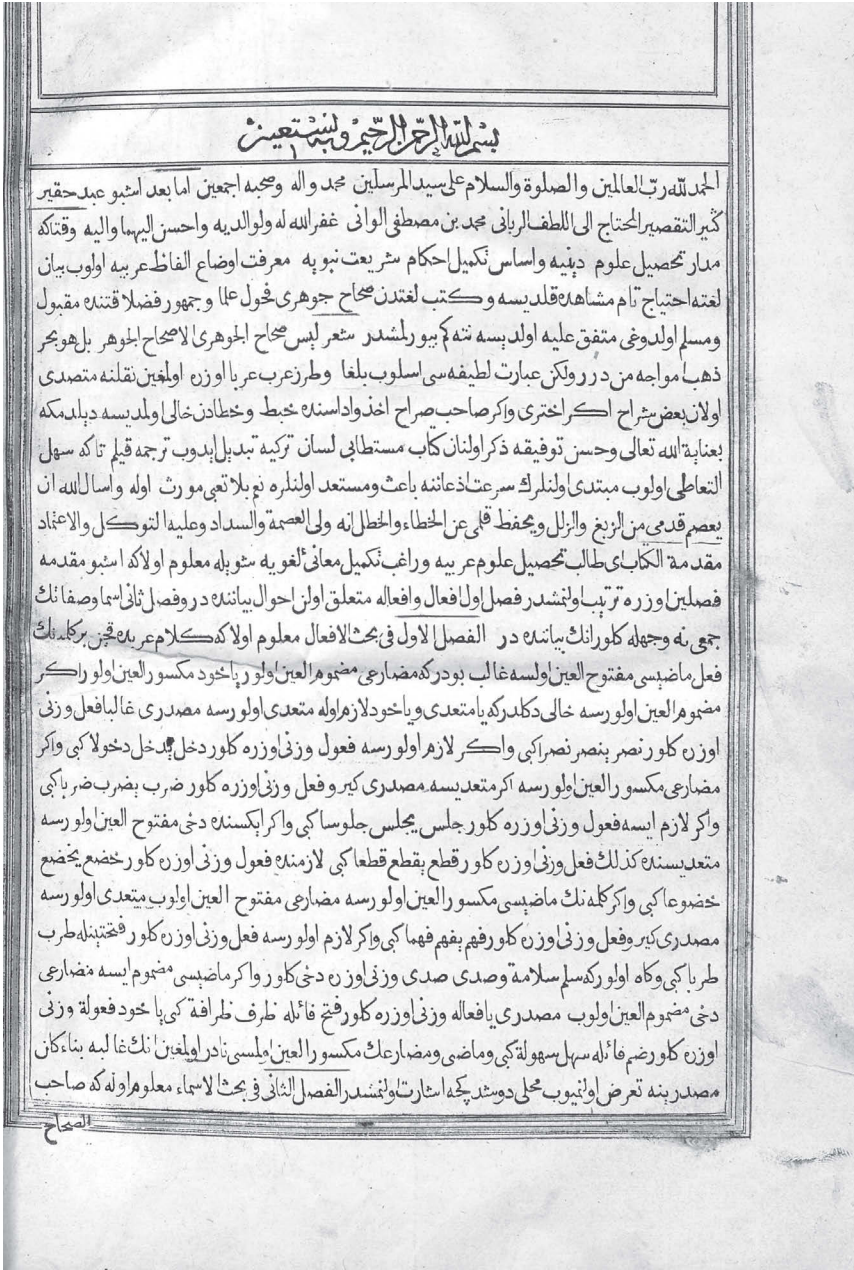 بسم الله الرحمن الرحيم وبه نستعين
الحمد لله رب العالمين والصلوة والسلام على سيد المرسلين محمد واله وصحبه اجمعين اما بعد اشبو عبد حقير
كثير التقصير المحتاج الى اللطف الربانى محمد بن مصطفى الوانى غفر الله له ولوالديه واحسن اليهما واليه وقتاكه
مدار تحصيل علوم دينيه واساس تكميل احكام شريعت نبويه معرفت اوضاع الفاظ عربيه اولوب بيان
لغته احتياج تام مشاهده قلديسه وكتب لغتدن صحاح جوهرى فحول علما وجمهور فضلا قتنده مقبول
ومسلم اولدوغى متفق عليه اولديسه نته كم بيورلمشدر شعر ليس صحاح الجوهرى الا صحاح الجوهر بل هو بحر
ذهب امواجه من درر ولكن عبارت لطيفه سى اسلوب بلغا وطرز عرب عربا اوزره اولمغين نقلنه متصدى
اولان بعض شراح اكر اخترى واكر صاحب صراح اخذ واداسنده خبط وخطادن خالى اولمديسه ديلدمكه
بعناية الله تعالى وحسن توفيقه ذكر اولنان كتاب مستطابى لسان تركيه تبديل ايدوب ترجمه قيلم تا كه سهل
التعاطى اولوب مبتدى اولنلرك سرعت ذعاننه باعث ومستعد اولنلره نعم بلا تعبى مورث اوله واسال الله ان
يعصم قدمى من الزيغ والزلل ويحفظ قلمى عن الخطاء والخطل انه ولى العصمة والسداد وعليه التوكل والاعتماد
مقدمة الكتاب اى طالب تحصيل علوم عربيه وراغب تكميل معانى لغويه شويله معلوم اولا كه اشبو مقدمه
فصلين اوزره ترتيب اولنمشدر فصل اول افعال وافعاله متعلق اولن احوال بياننده در وفصل ثانى اسما وصفاتك
جمعى نه وجهله كلور انك بياننده در الفصل الاول فى بحث الافعال معلوم اولا كه كلام عربده قچن بر كلمه نك
فعل ماضيسى مفتوح العين اولسه غالب بودر كه مضارعى مضموم العين اولور يا خود مكسور العين اولور اكر
مضموم العين اولورسه خالى دكلدر كه يا متعدى ويا خود لازم اوله متعدى اولورسه مصدرى غالبا فعل وزنى
اوزره كلور نصر ينصر نصرا كبى واكر لازم اولورسه فعول وزنى اوزره كلور دخل يدخل دخولا كبى واكر
مضارعى مكسور العين اولورسه اكر متعديسه مصدرى كيرو فعل وزنى اوزره كلور ضرب يضرب ضربا كبى
واكر لازم ايسه فعول وزنى اوزره كلور جلس يجلس جلوسا كبى واكر ايكسنده دخى مفتوح العين اولورسه
متعديسنده كذلك فعل وزنى اوزره كلور قطع يقطع قطعا كبى لازمنده فعول وزنى اوزره كلور خضع يخضع
خضوعا كبى واكر كلمه نك ماضيسى مكسور العين اولورسه مضارعى مفتوح العين اولوب متعدى اولورسه
مصدرى كيرو فعل وزنى اوزره كلور فهم يفهم فهما كبى واكر لازم اولورسه فعل وزنى اوزره كلور فتحتينله طرب
طربا كبى وكاه اولور كه سلم سلامة وصدى صدى وزنى اوزره دخى كلور واكر ماضيسى مضموم ايسه مضارعى
دخى مضموم العين اولوب مصدرى يا فعاله وزنى اوزره كلور فتح فائله ظرف ظرافة كبى يا خود فعولة وزنى
اوزره كلور ضم فائله سهل سهولة كبى وماضى ومضارعك مكسور العين اولمسى نادر اولمغين انك غالبه بناء كان
مصدرينه تعرض اولنميوب محلى دوشدكجه اشارت اولنمشدر الفصل الثانى فى بحث الاسماء معلوم اوله كه صاحب
الصحاح